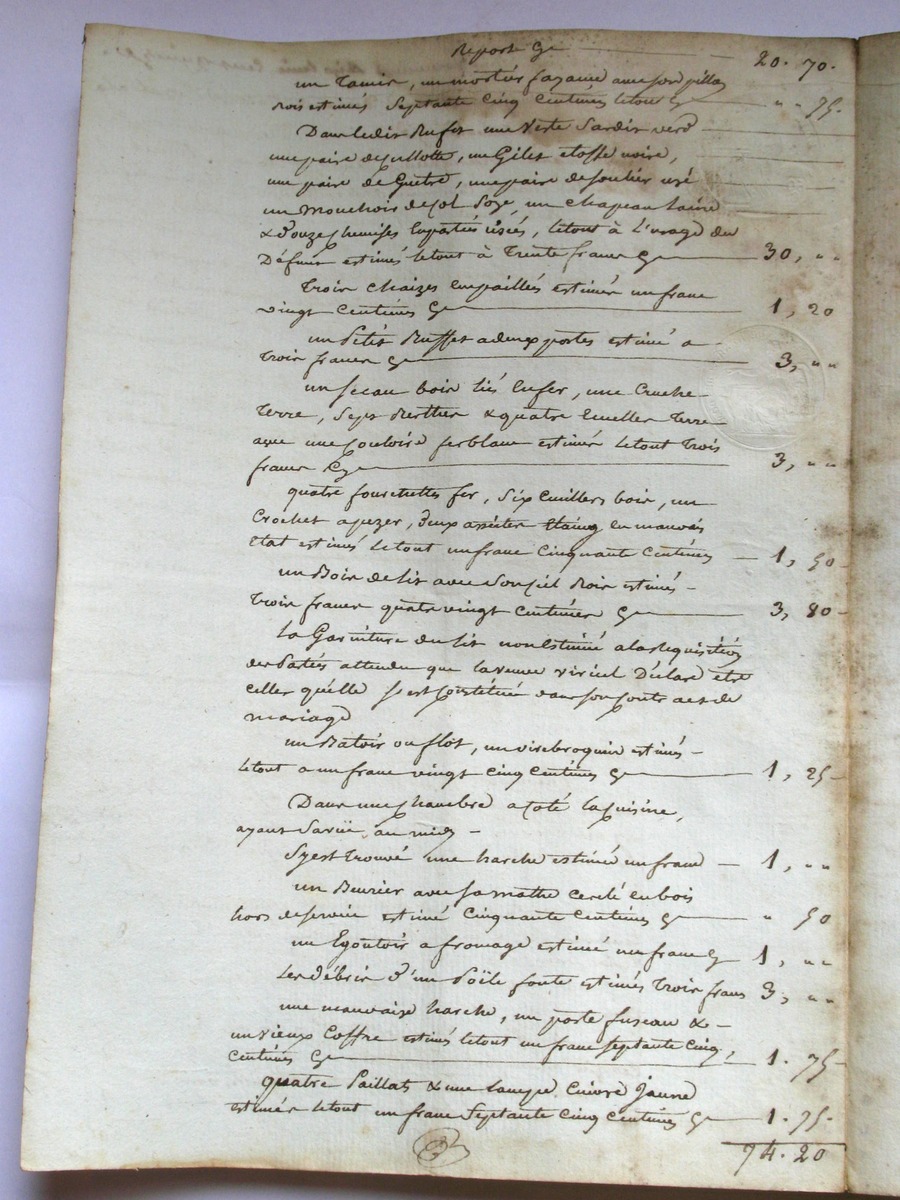 Report Cy 20. 70.
un Tamis, un mortier fayance avec son pillon
bois estimés Septante Cinq Centimes letout Cy " " 75.
Dans ledit Bufet une Veste Sardis verd
une paire de Cullotte, un Gilet etoffe noire,
une paire de Guetre, une paire de Soulier usé
un Mouchoir de Col Soye, un Chapeau Laine
& douze Chemises En partie usées, letout à L'usage du
Défunt estimés letout à Trente francs Cy 30, " "
Trois chaizes Empaillés estimées un franc
vingt Centimes Cy 1, 20
un Petit Buffet a deux portes estimé a
Trois francs Cy 3, " "
un Sceau bois liés En fer, une Cruche
Terre, Sept & quatre Ecuelles Terre
avec une Couloire ferblanc estimés letout Trois
francs Cy 3, " "
quatre fourchettes fer, Six Cuillers bois, un
Crochet a pezer, deux assietes Etaing En mauvais
Etat estimés Letout un franc Cinquante Centimes 1, 50
un Bois de lit avec Son Ciel Bois estimés
Trois francs quatre vingt Centimes Cy 3, 80
La Garniture du lit non Estimé a la Requisition
des Parties attendu que la veuve Déclare etre
celles qu'elle S'est Constitué dans son Contract de
mariage
un Batoir ou flot, un virebroquin estimés
letout a un franc vingt Cinq Centimes Cy 1, 25
Dans une Chambre a Coté la Cuisine,
ayant Sa vüe au midy
S'y est Trouvé une harche estimée un franc 1, " "
un Beurier avec Sa mathe Cerclé en bois
hors de Service estimé Cinquante Centimes Cy " 50
un Egoutoir a fromage estimé un franc Cy 1, " "
Les débris d'un Poïle fonte estimés Trois francs 3, " "
une mauvaise harche, un porte fuseau &
un vieux Coffre estimés letout un franc Septante Cinq
Centimes Cy 1. 75
quatre Paillats & une Lampe Cuivre Jaune
estimés letout un franc Septante Cinq Centimes Cy 1. 75.
74. 20